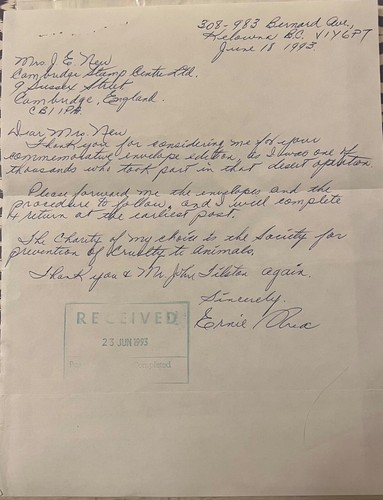 308-983 Bernard Ave,
Kelowna B.C. V1Y6P7
June 18 1993
Mrs. J E New
Cambridge Stamp Centre Ltd.
9 Sussex Street
Cambridge, England.
CB1 1PA.
Dear Mrs. New
Thank you for considering me for your
commemorative envelope edition, as I was one of
thousands who took part in that desert operation
Please forward me the envelopes and the
procedure to follow, and I will complete
& return at the earliest post.
The Charity of my choice is the Society for
prevention of Cruelty to Animals.
Thank you & Mr. John Tilston again.
Sincerely.
Ernie
RECEIVED
23 JUN 1993